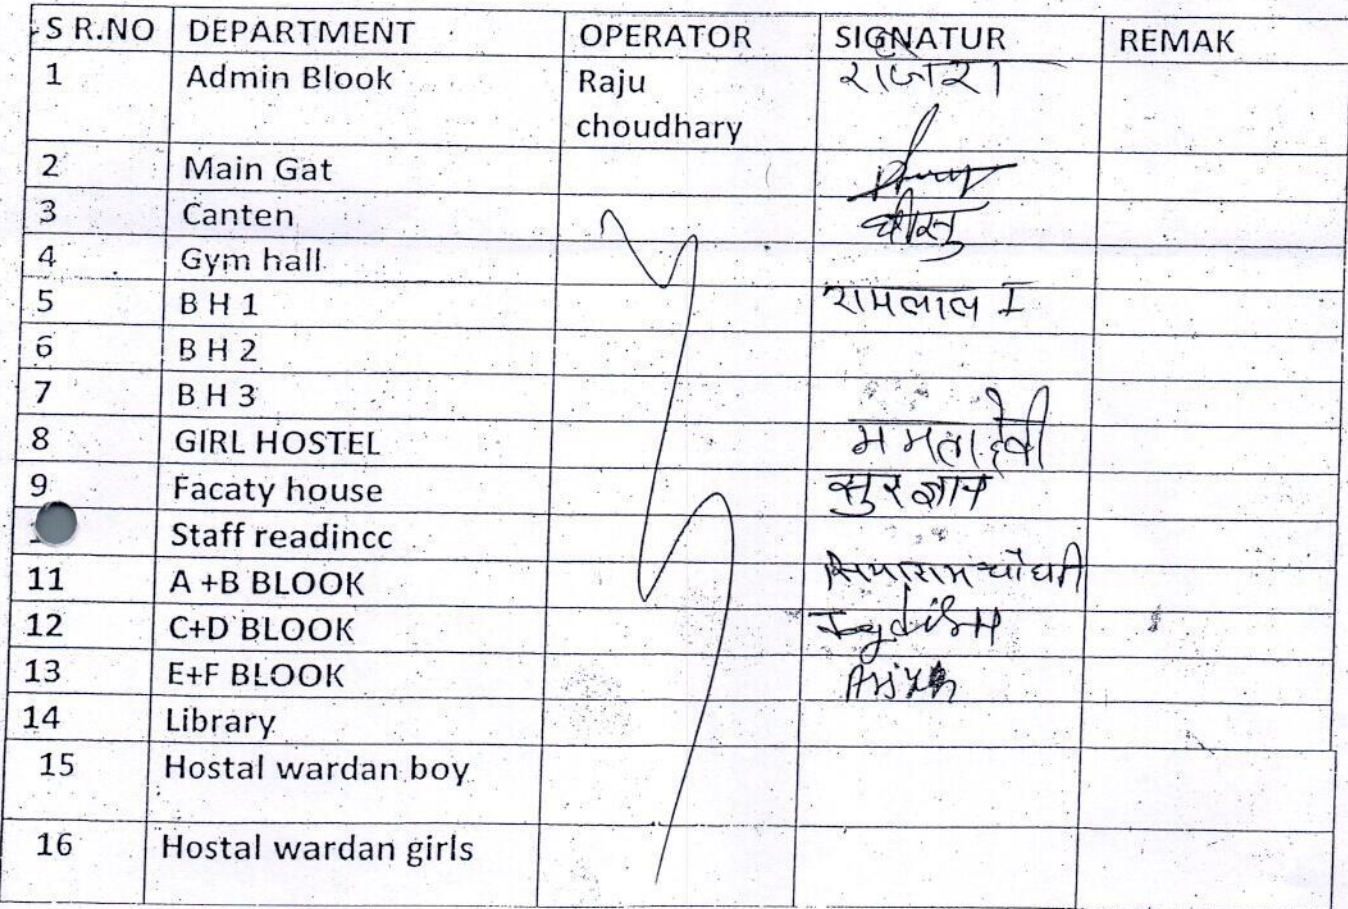 S R.NO DEPARTMENT OPERATOR SIGNATUR REMAK
1 Admin Blook Raju
choudhary
2 Main Gat
3 Canten
4 Gym hall
5 B H 1 रामलाल I
6 B H 2
7 B H 3
8 GIRL HOSTEL ममता देवी
9 Facaty house सुरज्ञान
Staff readincc
11 A +B BLOOK सियाराम चौधरी
12 C+D BLOOK
13 E+F BLOOK
14 Library
15 Hostal wardan boy
16 Hostal wardan girls